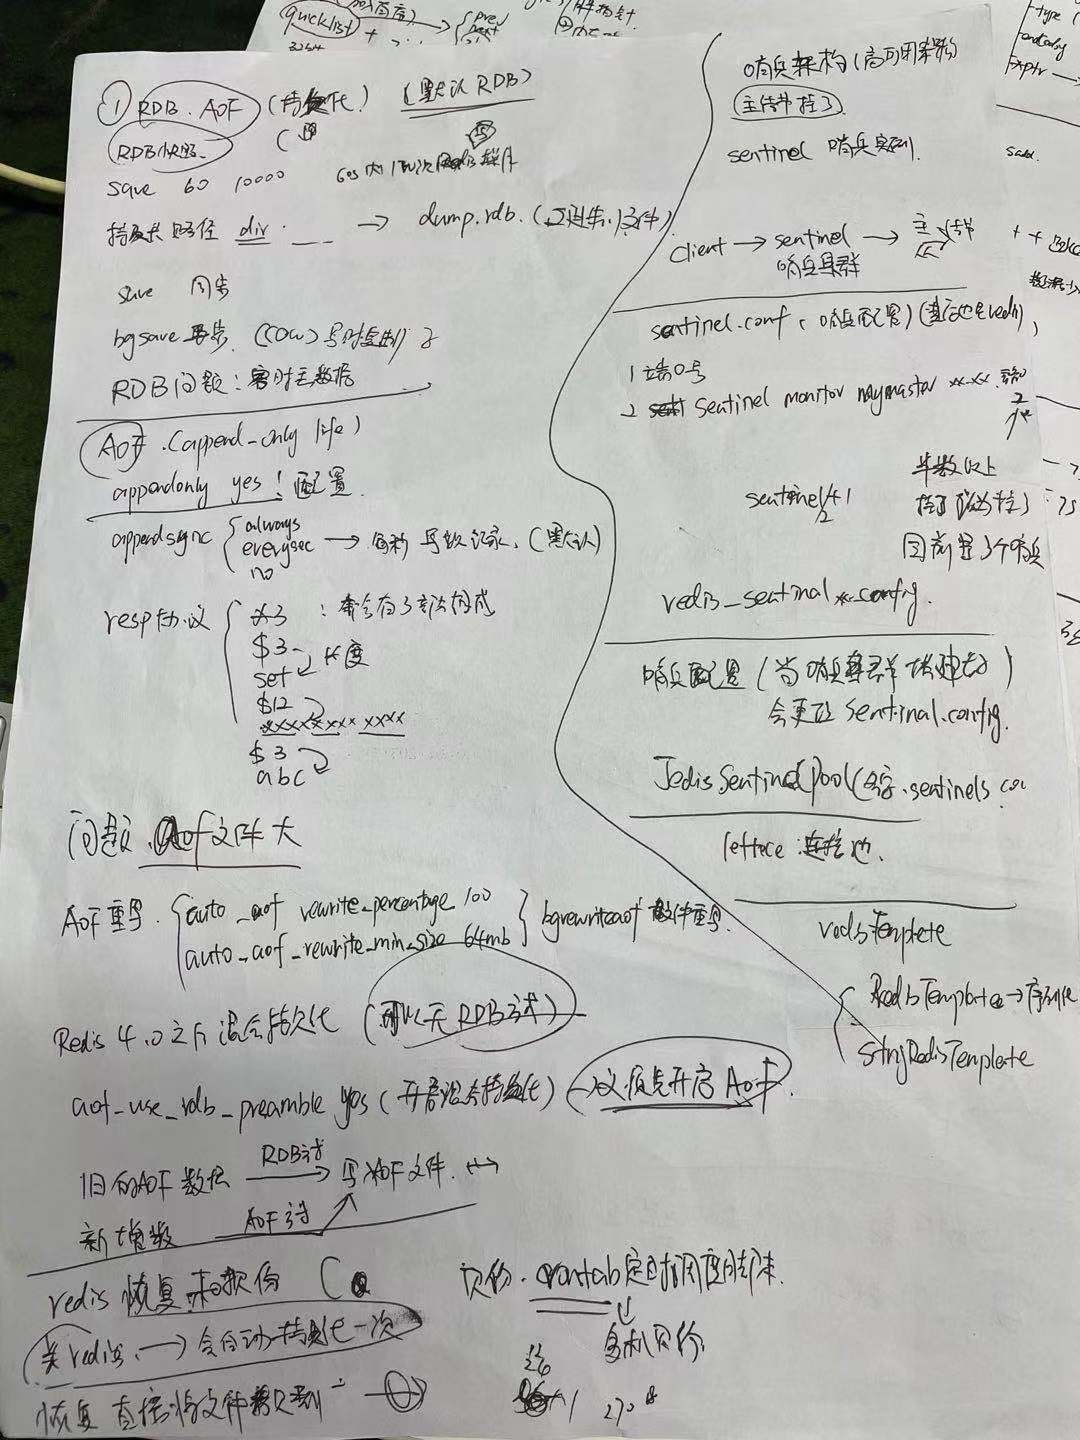 quicklist
① RDB. AOF (持久化) (默认RDB)
RDB快照
save 60 10000 60s内1万次Redis操作
持久化路径 dir. → dump.rdb.(二进制文件)
save 同步
bgsave 异步. (COW)写时复制
RDB问题:容时丢数据
AOF.(append-only life)
appendonly yes! 配置
appendsync { always
everysec → 每秒写数记录.(默认)
no
resp协议 { *3 : 命令有3部分组成
$3
set 长度
$12
xxxxxxxx xxxx
$3
abc
问题. aof文件大
AOF重写. { auto_aof rewrite_percentage 100
auto_aof_rewrite_min_size 64mb } bgrewriteaof 文件重写.
Redis 4.0之后混合持久化 (可以无RDB方式)
aof_use_rdb_preamble yes (开启混合持久化) → 必须先开启AOF.
旧的AOF数据 RDB方式 → 写AOF文件.
新增数 AOF方式
redis 恢复和备份
关redis. → 会自动持久化一次
恢复 直接将文件拷贝到
备份. crontab定时调度脚本.
多机备份.
哨兵架构(高可用架构)
主节点挂了
sentinel 哨兵实例.
client → sentinel → 主 节点
哨兵集群
sentinel.conf (哨兵配置)
1 端口号
2 sentinel monitor mymaster xx.xx. 端口 2
sentinel/2+1 半数以上
挂了
因需是3个哨兵
redis_sentinal x.config.
哨兵配置 (当哨兵集群搭建好)
会更改 sentinal.config.
JedisSentinelPool( .sentinels
lettece 连接池.
redisTemplete
{ RedisTemplate → 序列化
StringRedisTemplate